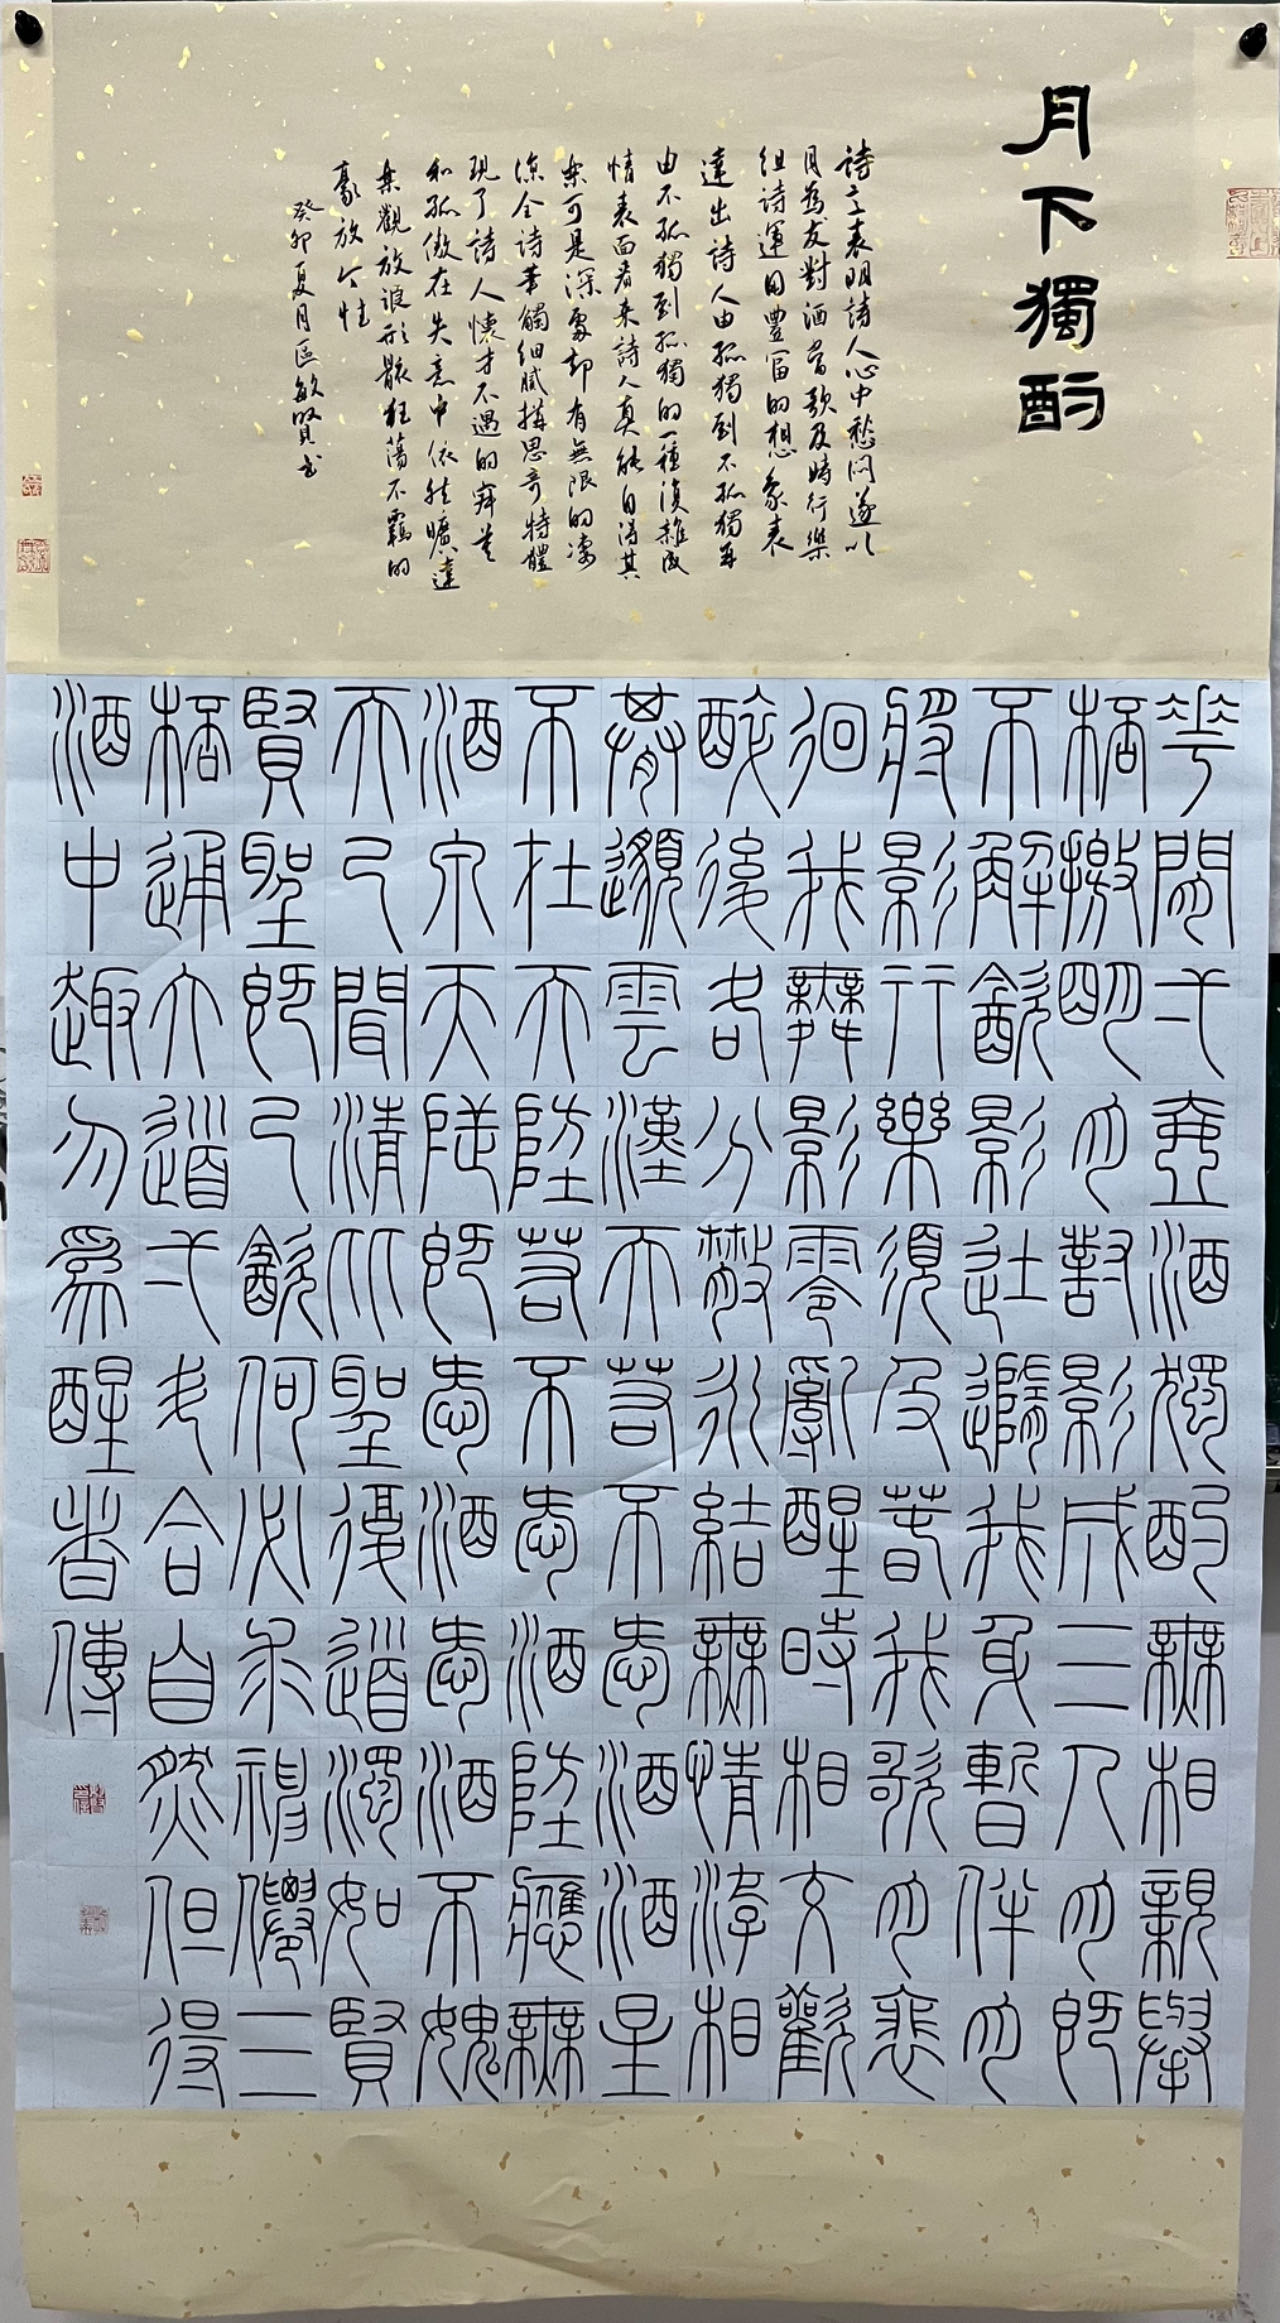 月下獨酌
詩意表明詩人心中愁悶遂以
月為友對酒當歌及時行樂
組詩運用豐富的想象表
達出詩人由孤獨到不孤獨再
由不孤獨到孤獨的一種復雜感
情表面看來詩人真能自得其
樂可是深處却有無限的淒
涼全詩筆觸細膩構思奇特體
現了詩人懷才不遇的寂寞
和孤傲在失意中依然曠達
樂觀放浪形骸狂蕩不羈的
豪放个性
癸卯夏月區敏賢書
花間一壺酒獨酌無相親舉
杯邀明月對影成三人月既
不解飲影徒隨我身暫伴月
將影行樂須及春我歌月裴
徊我舞影零亂醒時相交歡
醉後各分散永結無情遊相
期邈雲漢天若不愛酒酒星
不在天地若不愛酒地應無
酒泉天地既愛酒愛酒不愧
天已聞清比聖復道濁如賢
賢聖既已飲何必求神僊三
杯通大道一斗合自然但得
酒中趣勿為醒者傳